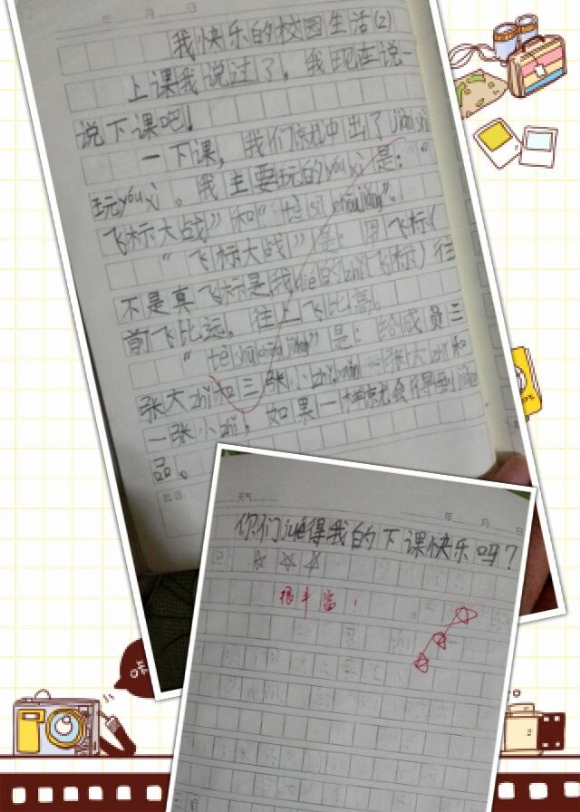 年 月 日
我快乐的校园生活(2)
上课我说过了。我现在说一
说下课吧!
一下课,我们就冲出了
玩yóu xì。我主要玩的yóu xì是:“
飞标大战”和“
“飞标大战”是:用飞标(
不是真飞标是我die的zhi飞标)往
前飞比远。往上飞比高。
是:给成员三
张大zhi和三张小zhi 一张大zhi和
一张小zhi,如果一样就会得到
品。
起话:
天气
年 月 日
你们jue得我的下课快乐吗?
很丰富!